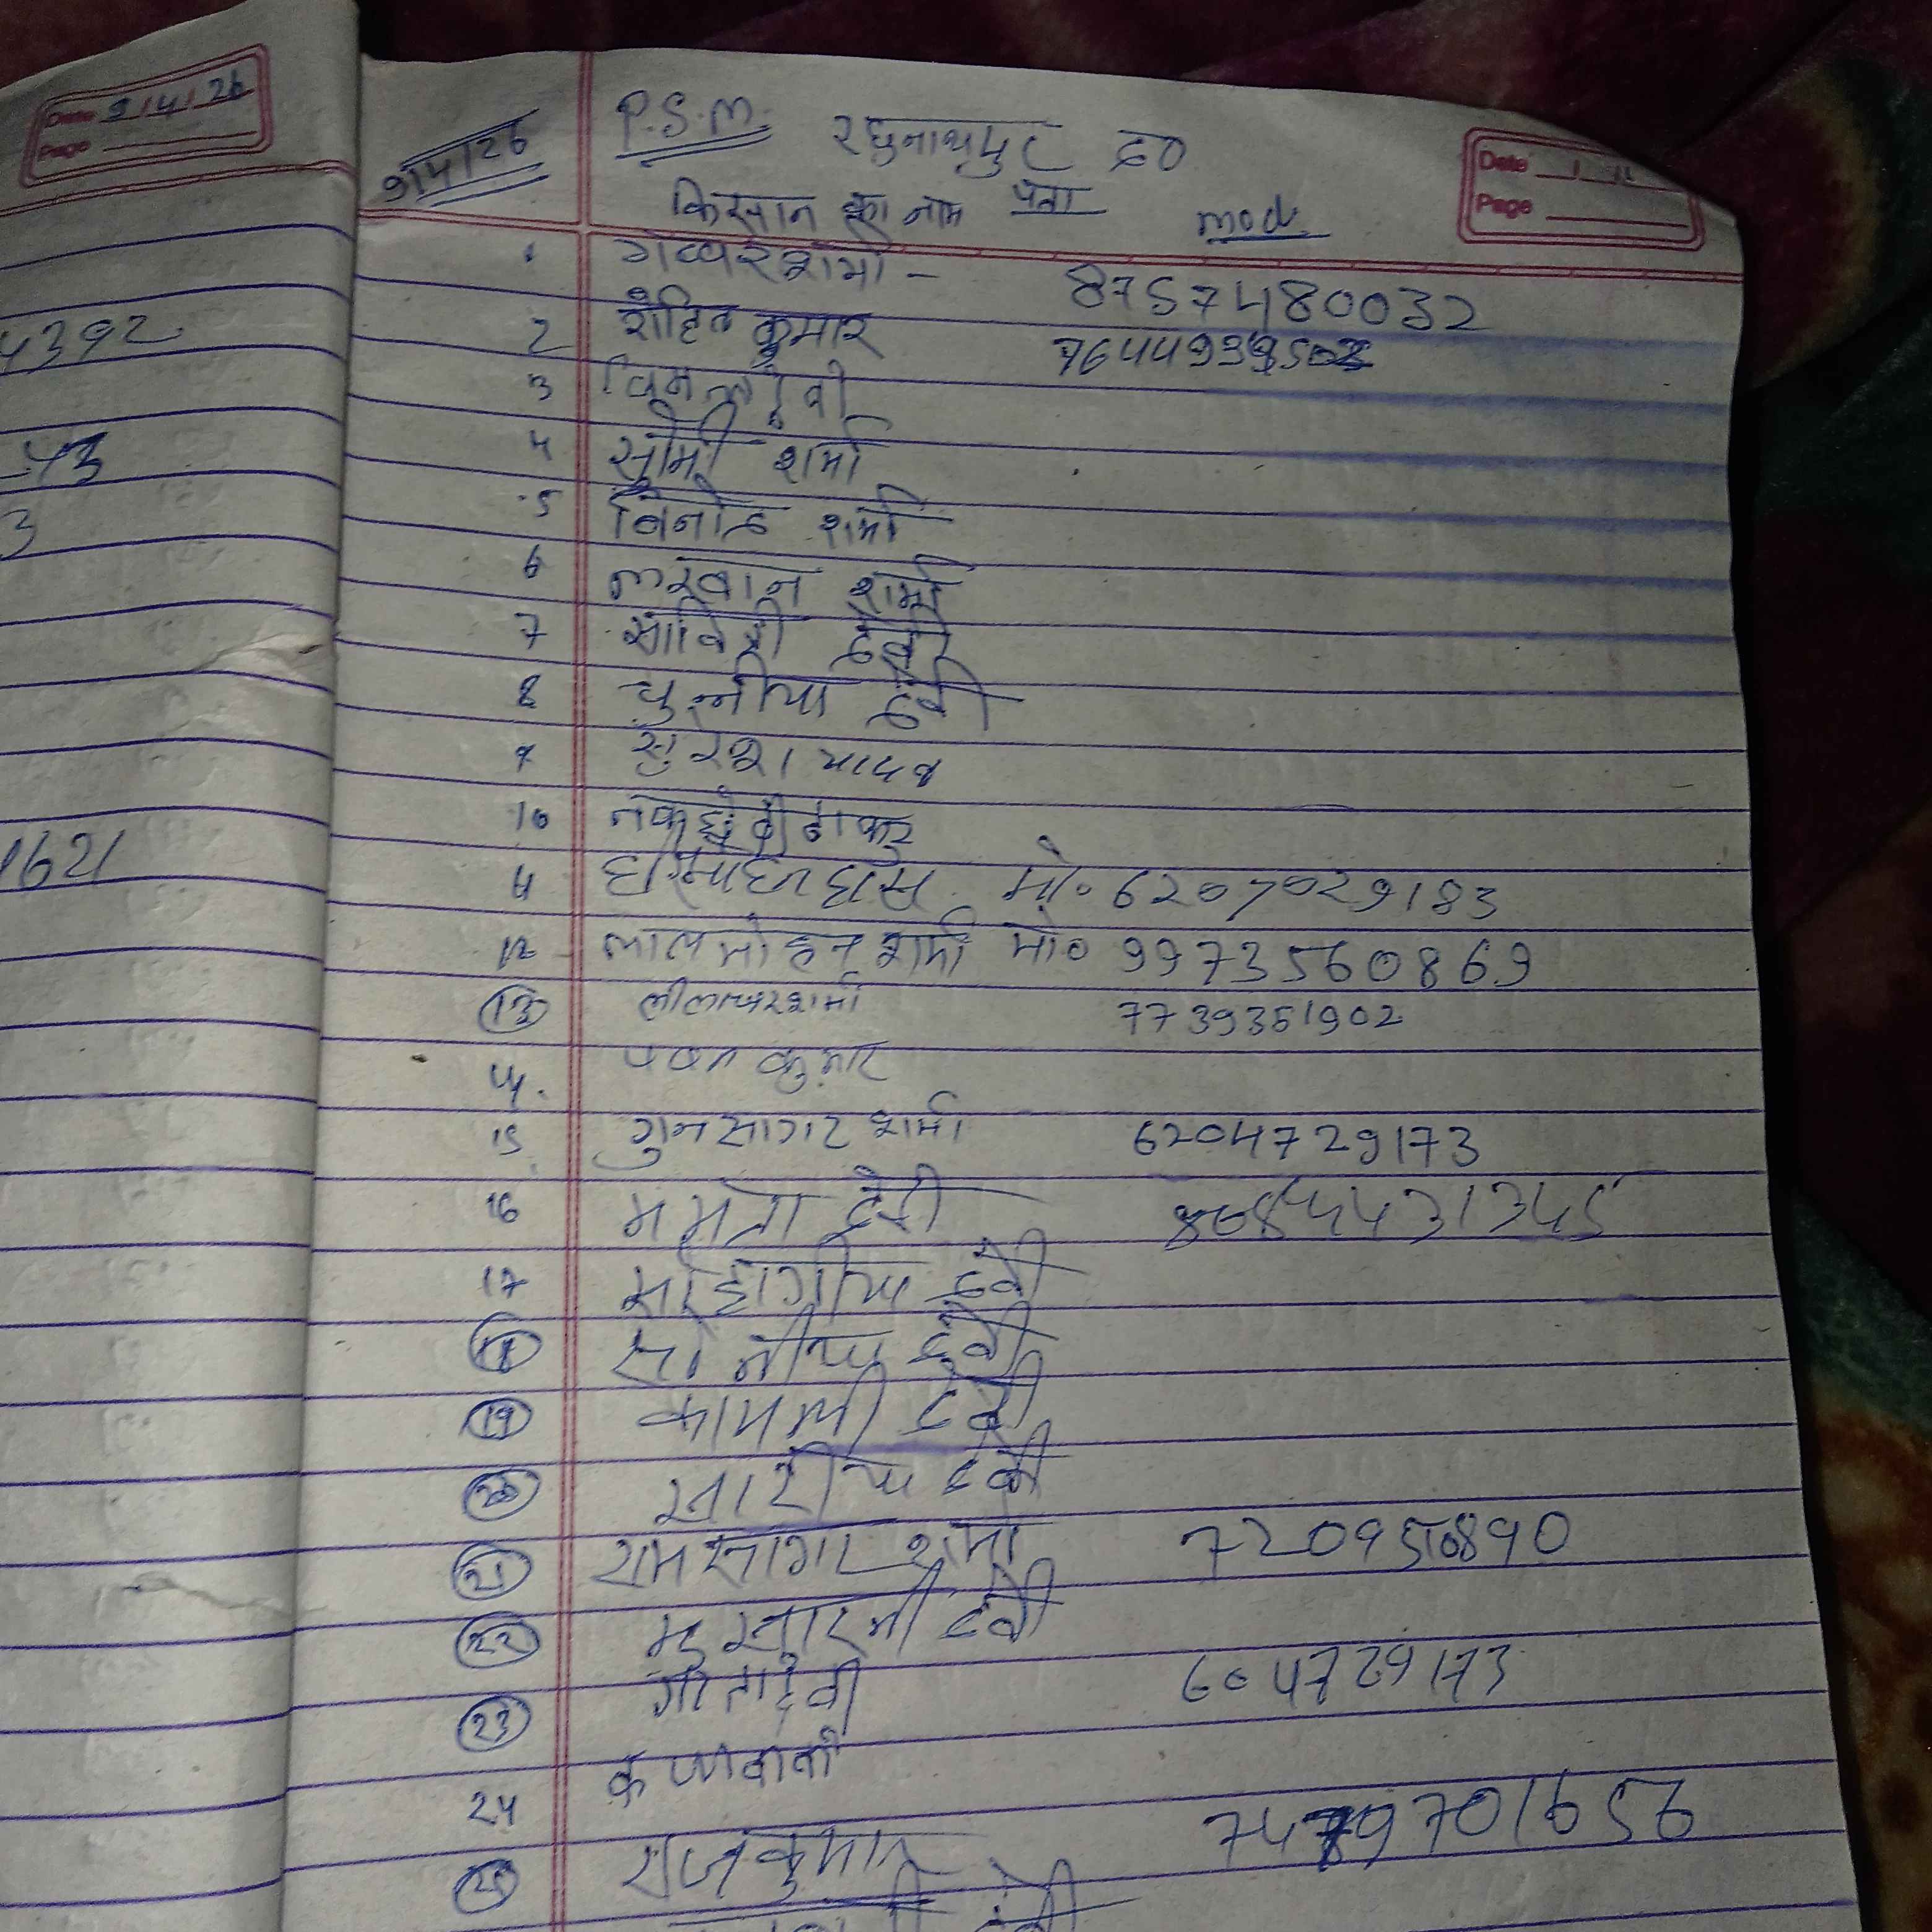 Date 9/4/26
Page
4392
43
3
1621
9/4/26
P.S.M. रघुनाथपुर
Date
Page
किसान का नाम पता mod.
1 गब्बर शर्मा - 8757480032
2 रोहित कुमार
3 विमला देवी
4 शर्मा
5 विनोद शर्मा
6 लखान शर्मा
7 सावित्री देवी
8 चुन्नीया देवी
9 सुरेश यादव
10 नकछेदी ठाकुर
11 मो० 6207029183
12 लालमोहन शर्मा मो० 9973560869
13 7739351902
14. पवन कुमार
15 गुनसागर शर्मा 6204729173
16 ममता देवी
17 सोहागीया देवी
18 सोनीया देवी
19 कामली देवी
20 देवी
21 रामसागर शर्मा
22 देवी
23 गीता देवी 604729173
24
25 राजकुमार 7479701656
देवी